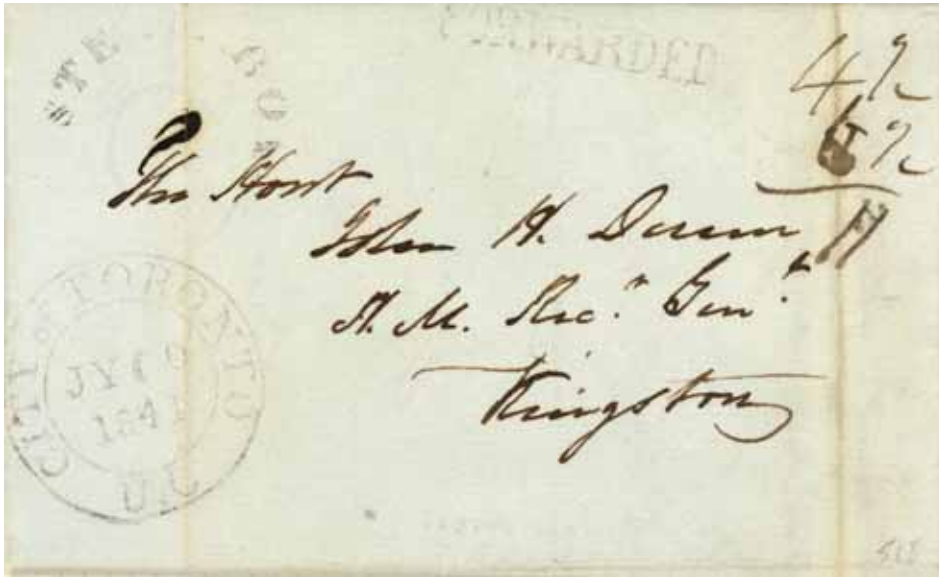 FORWARDED
4½
½
11
The Honl
John H. Dunn
H. M. Rec.r Gen.l
Kingston
CITY OF TORONTO
JY
184
U.C